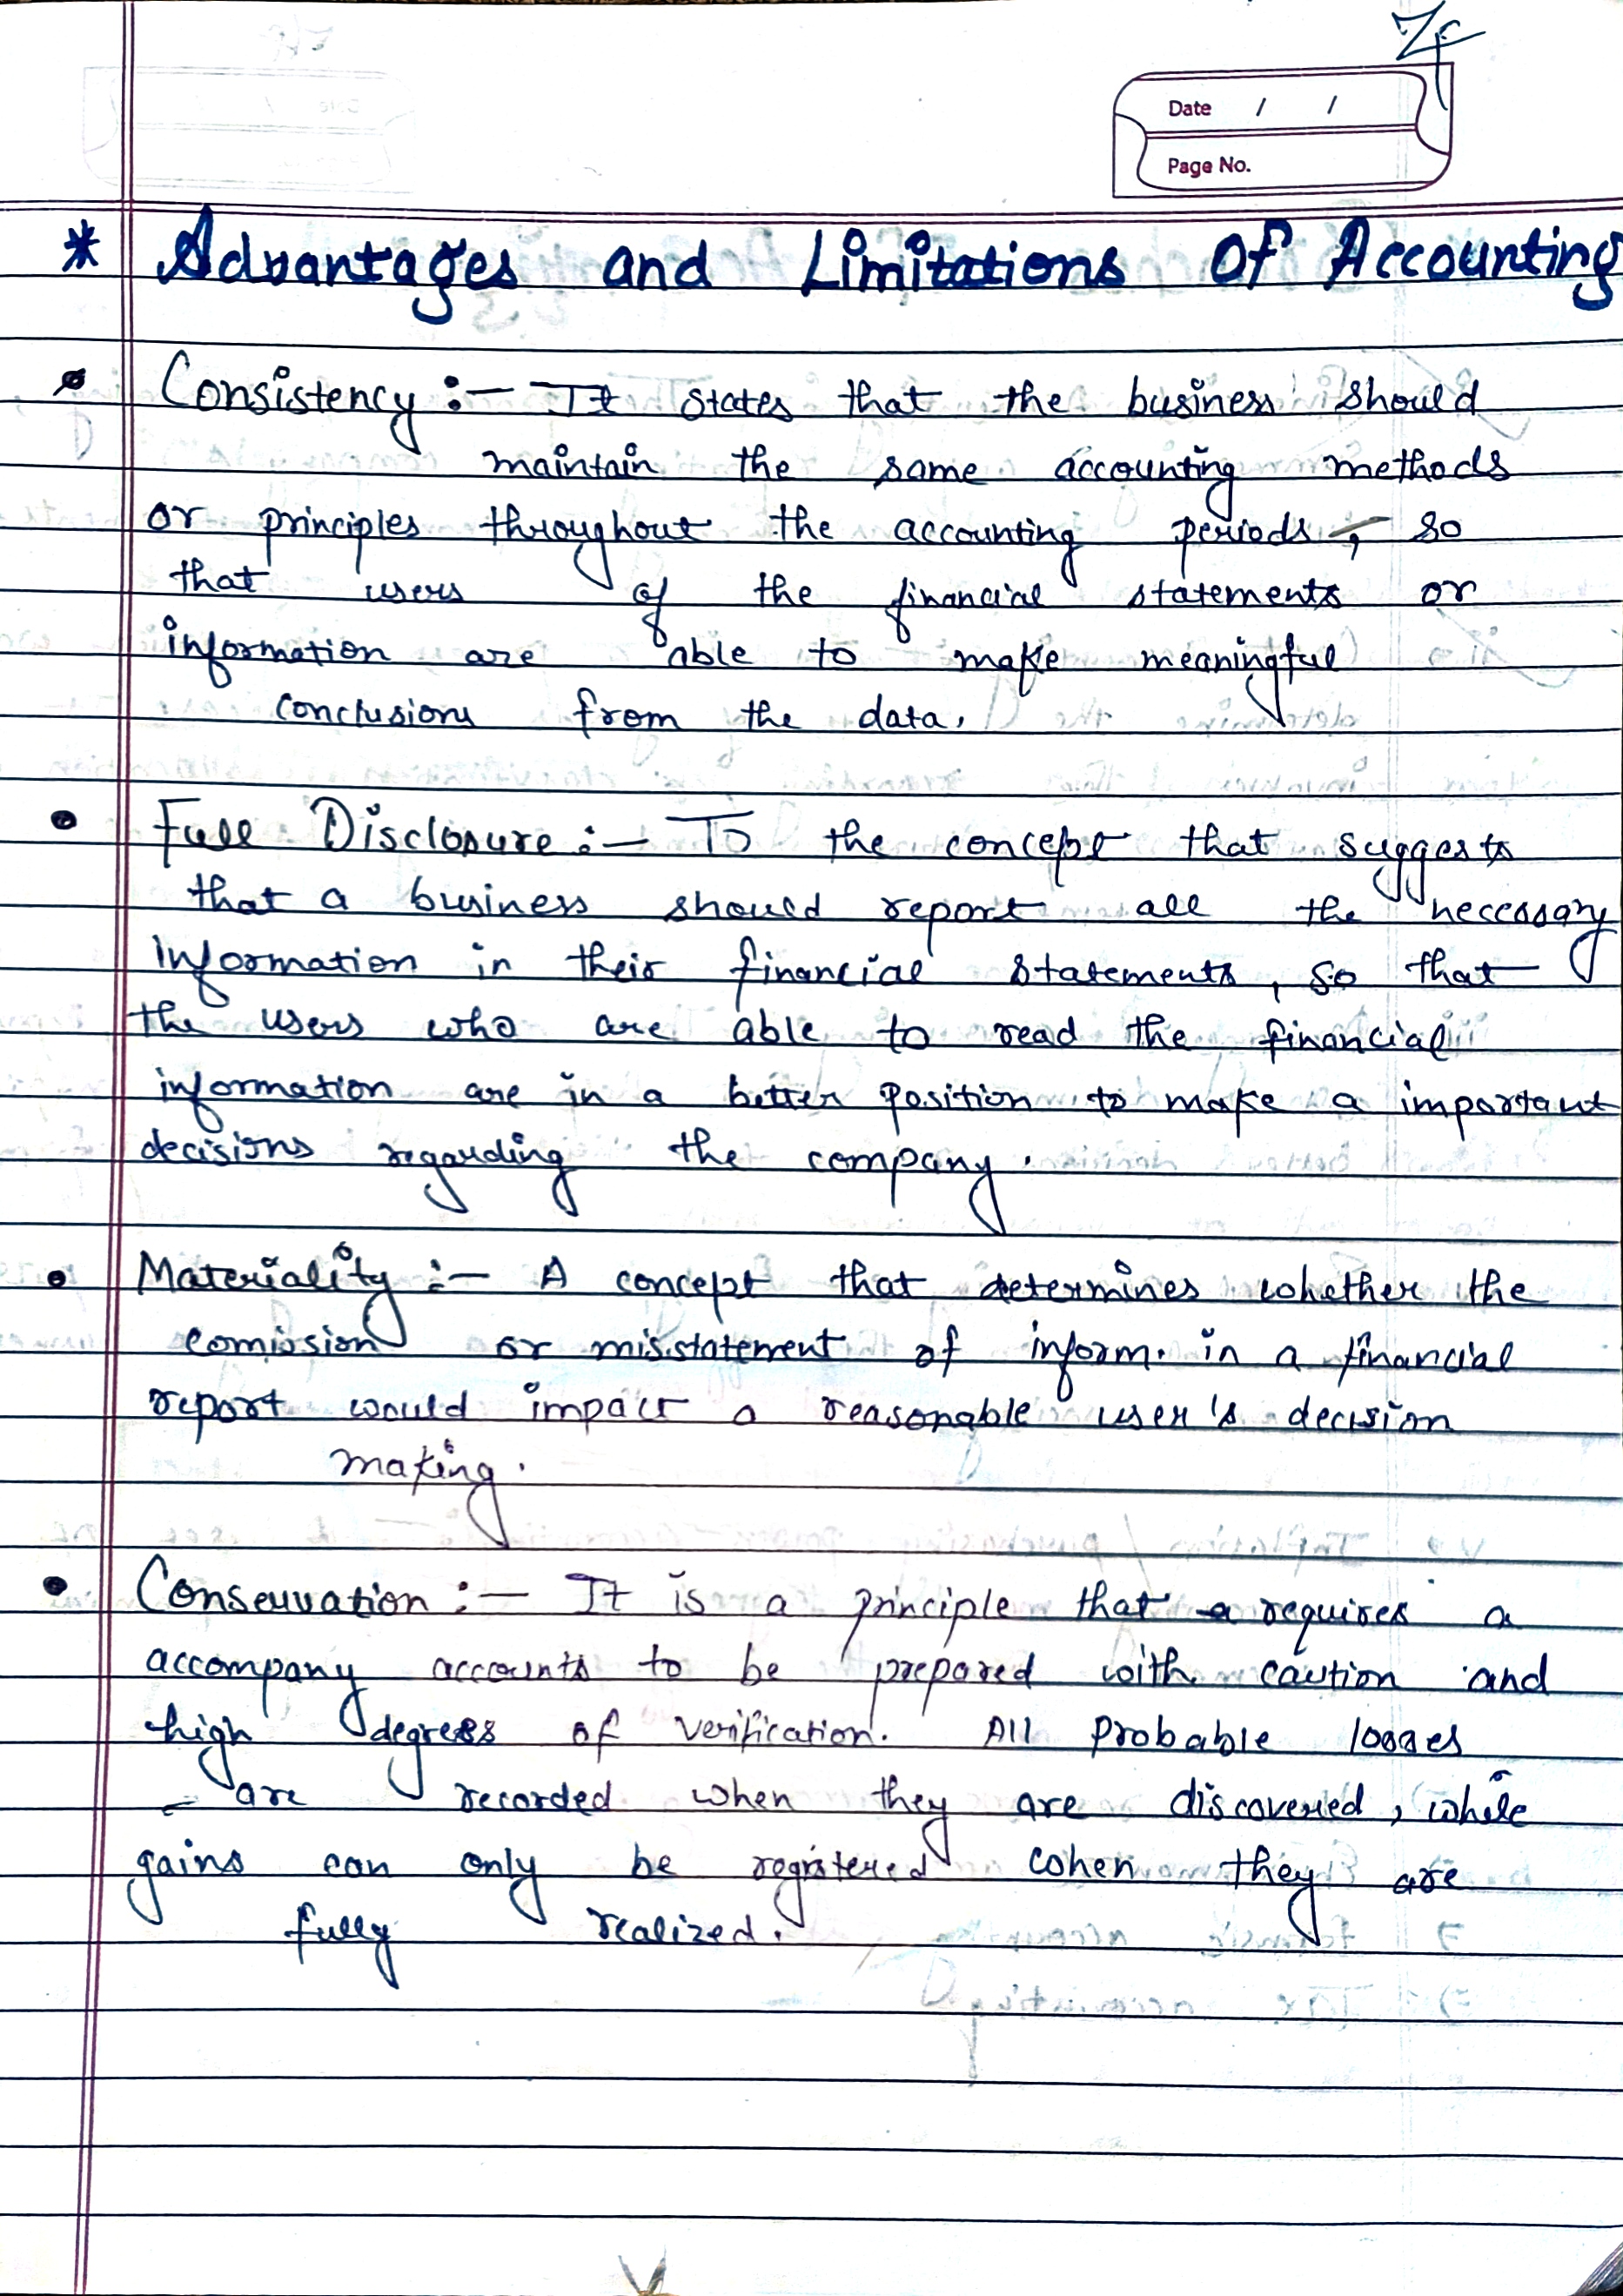 Date / /
Page No.
* Advantages and Limitations Of Accounting
• Consistency :- It states that the business should
maintain the same accounting methods
or principles throughout the accounting periods, so
that users of the financial statements or
information are able to make meaningful
conclusions from the data.
• Full Disclosure :- To the concept that suggests
that a business should report all the necessary
Information in their financial statements, so that
the users who are able to read the financial
information are in a better position to make a important
decisions regarding the company.
• Materiality :- A concept that determines whether the
comission or misstatement of inform. in a financial
report would impact a reasonable user's decision
making.
• Conservation :- It is a principle that a requires a
accompany accounts to be prepared with caution and
high degress of verification. All probable losses
are recorded when they are discovered, while
gains can only be registered when they are
fully realized.